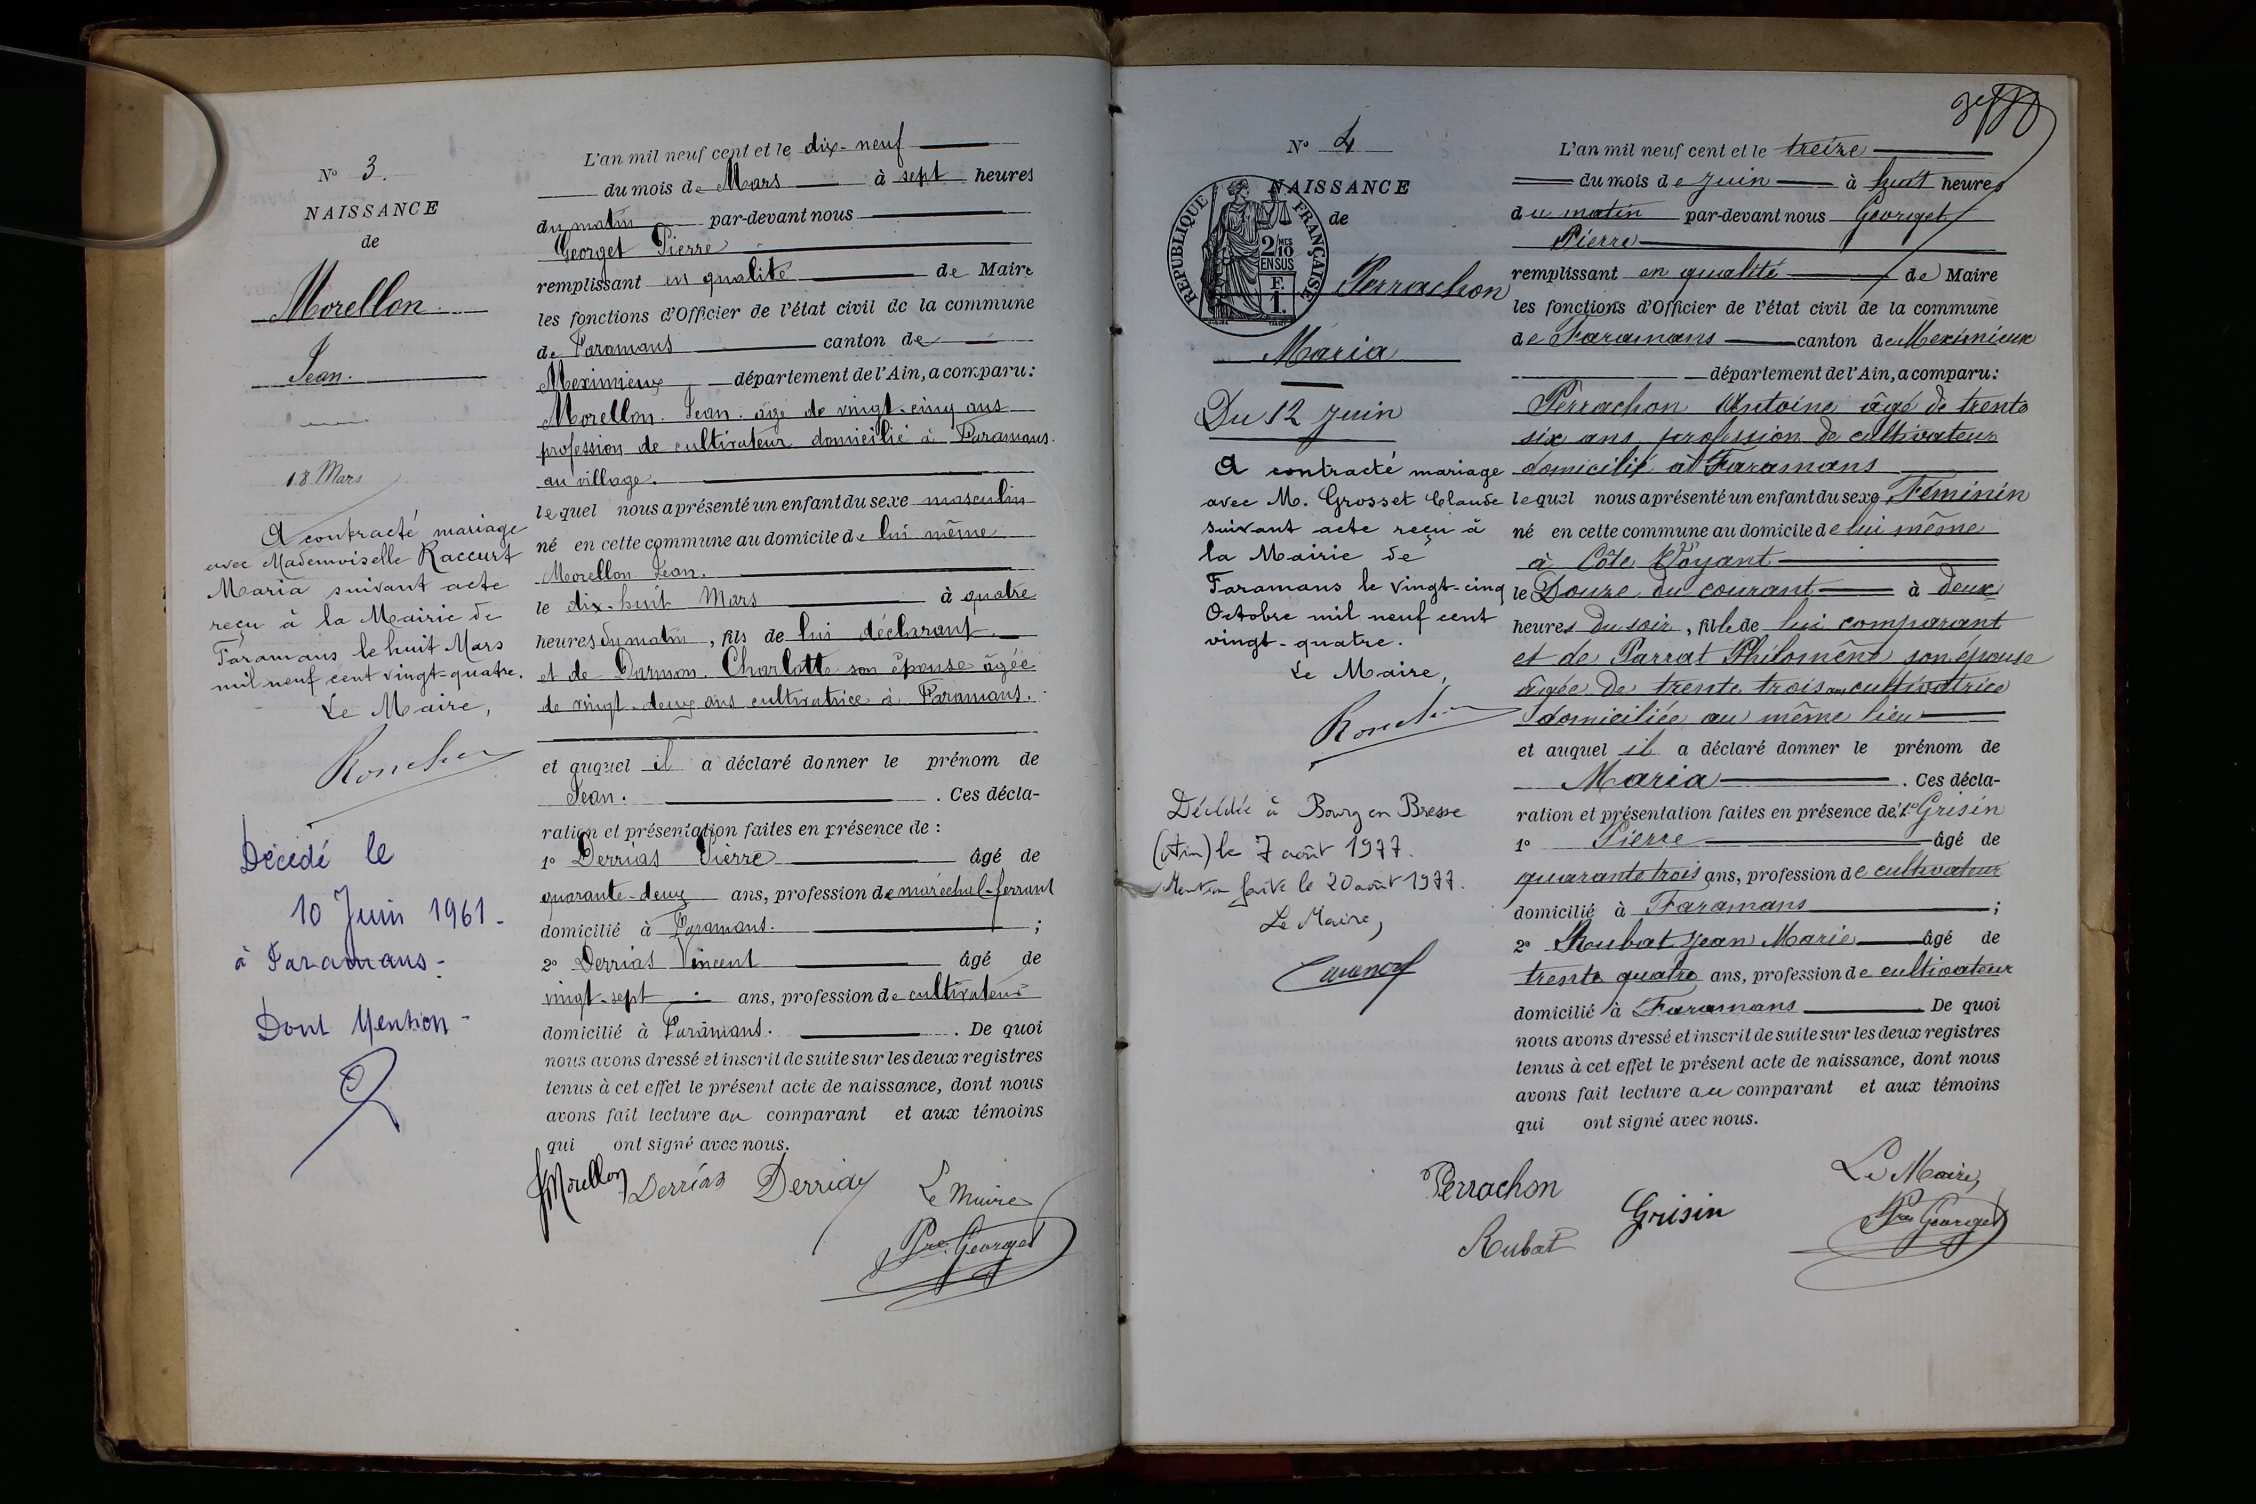 N° 3.
NAISSANCE
de
Morellon
Jean.
18 Mars
A contracté mariage
avec Mademoiselle Raccurt
Maria suivant acte
reçu à la Mairie de
Faramans le huit Mars
mil neuf cent vingt-quatre.
Le Maire,
Décédé le
10 Juin 1961 -
à Faramans -
Dont Mention -
L'an mil neuf cent et le dix-neuf
du mois de Mars à sept heures
du matin par-devant nous
Georget Pierre
remplissant en qualité de Maire
les fonctions d'Officier de l'état civil de la commune
de Faramans canton de
Meximieux département de l'Ain, a comparu :
Morellon Jean âgé de vingt-cinq ans
profession de cultivateur domicilié à Faramans.
au village.
lequel nous a présenté un enfant du sexe masculin
né en cette commune au domicile de lui même
Morellon Jean.
le dix-huit Mars à quatre
heures du matin, fils de lui déclarant
et de Darmon Charlotte son épouse âgée
de vingt-deux ans cultivatrice à Faramans.
et auquel il a déclaré donner le prénom de
Jean. . Ces décla-
ration et présentation faites en présence de :
1° Derrias Pierre âgé de
quarante-deux ans, profession de maréchal-ferrant
domicilié à Faramans. ;
2° Derrias Vincent âgé de
vingt-sept ans, profession de cultivateur
domicilié à Faramans. . De quoi
nous avons dressé et inscrit de suite sur les deux registres
tenus à cet effet le présent acte de naissance, dont nous
avons fait lecture au comparant et aux témoins
qui ont signé avec nous.
JMorellon Derrias Derrias Le Maire
Pre Georget
N° 4
NAISSANCE
de
REPUBLIQUE FRANÇAISE
2/10 MES
EN SUS
F.
1.
Perrachon
Maria
Du 12 juin
A contracté mariage
avec M. Grosset Claude
suivant acte reçu à
la Mairie de
Faramans le vingt-cinq
Octobre mil neuf cent
vingt-quatre.
Le Maire,
Décédée à Bourg en Bresse
(Ain) le 7 août 1977.
Mention faite le 20 août 1977.
Le Maire,
L'an mil neuf cent et le treize
du mois de juin à huit heures
du matin par-devant nous Georget
Pierre
remplissant en qualité de Maire
les fonctions d'Officier de l'état civil de la commune
de Faramans canton de Meximieux
département de l'Ain, a comparu :
Perrachon Antoine âgé de trente
six ans, profession de cultivateur
domicilié à Faramans
lequel nous a présenté un enfant du sexe Féminin
né en cette commune au domicile de lui même
à Côte Voyant
le Douze du courant à deux
heures du soir, fille de lui comparant
et de Parrat Philomène son épouse
âgée de trente trois ans cultivatrice
domiciliée au même lieu
et auquel il a déclaré donner le prénom de
Maria . Ces décla-
ration et présentation faites en présence de : 1° Grisin
1° Pierre âgé de
quarante trois ans, profession de cultivateur
domicilié à Faramans ;
2° Roubat Jean Marie âgé de
trente quatre ans, profession de cultivateur
domicilié à Faramans De quoi
nous avons dressé et inscrit de suite sur les deux registres
tenus à cet effet le présent acte de naissance, dont nous
avons fait lecture au comparant et aux témoins
qui ont signé avec nous.
Perrachon Le Maire,
Grisin Pre Georget
Rubat